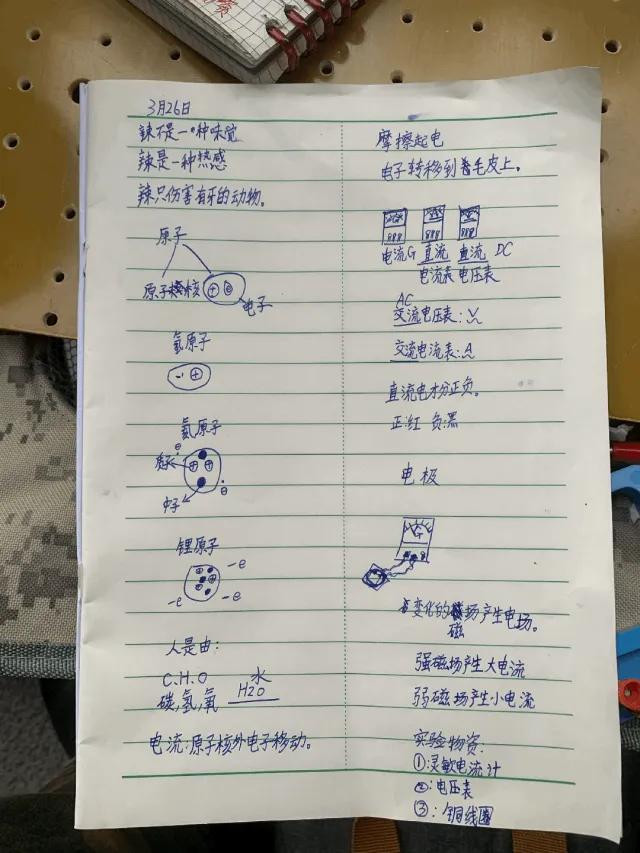 3月26日
辣不是一种味觉
辣是一种热感
辣只伤害有牙的动物。
原子
原子核
电子
氢原子
氦原子
质子
中子
锂原子
-e
-e
-e
人是由:
C.H.O 水
碳,氢,氧 H2O
电流:原子核外电子移动。
摩擦起电
电子转移到卷毛皮上。
电流G 直流 直流 DC
电流表 电压表
AC
交流电压表:V
交流电流表:A
直流电才分正负。
正:红 负:黑
电极
G
变化的磁场产生电场。
强磁场产生大电流
弱磁场产生小电流
实验物资:
①:灵敏电流计
②:电压表
③:铜线圈